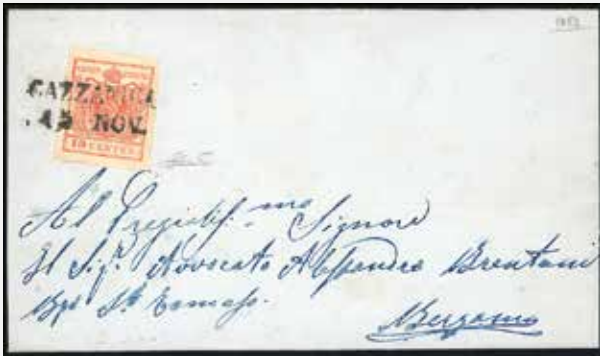 GAZZANIGA
15 NOV.
15 CENTES
Al Pregiatiss.mo Signore
Il Sigr. Avvocato Alessandro Brentani
Bgo St. Tomaso.
Bergamo